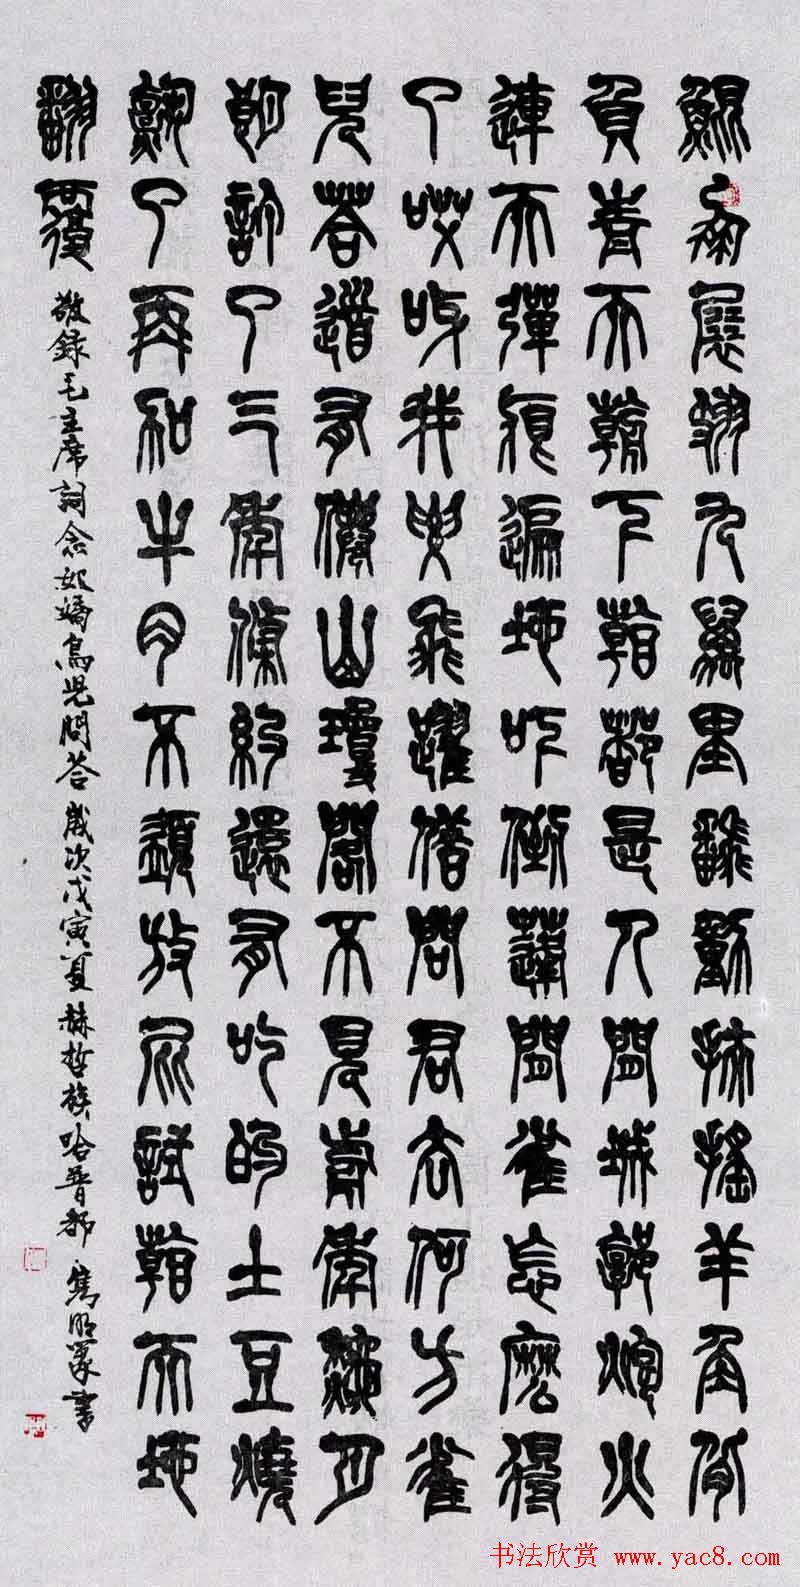 鯤鵬展翅九萬里翻動扶搖羊角背
負青天朝下看都是人間城郭炮火
連天彈痕遍地吓倒蓬間雀怎麼得
了哎呀我要飛躍借問君去何方雀
兒答道有僊山瓊閣不見前年秋月
朗訂了三家條約還有吃的土豆燒
熟了再加牛肉不須放屁試看天地
翻覆
敬錄毛主席詞念奴嬌鳥兒問答 歲次戊寅夏赫哲族哈普都 雋明篆書
书法欣赏 www.yac8.com